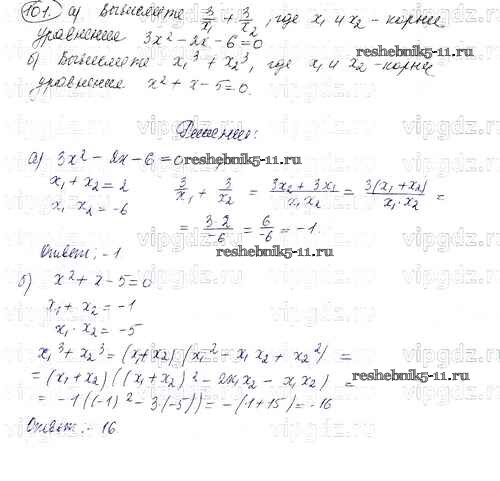 101. а) Вычислите 3/x₁ + 3/x₂, где x₁ и x₂ - корни
уравнения 3x² - 2x - 6 = 0
б) Вычислите x₁³ + x₂³, где x₁ и x₂ - корни
уравнения x² + x - 5 = 0.
reshebnik5-11.ru
Решение:
а) 3x² - 2x - 6 = 0
reshebnik5-11.ru
x₁ + x₂ = 2
x₁ · x₂ = -6
3/x₁ + 3/x₂ = (3x₂ + 3x₁)/(x₁x₂) = 3(x₁ + x₂)/(x₁ · x₂) =
= (3·2)/(-6) = 6/(-6) = -1.
reshebnik5-11.ru
Ответ: -1
б) x² + x - 5 = 0
x₁ + x₂ = -1
x₁ · x₂ = -5
x₁³ + x₂³ = (x₁ + x₂)(x₁² - x₁x₂ + x₂²) =
= (x₁ + x₂)((x₁ + x₂)² - 2x₁x₂ - x₁x₂) =
reshebnik5-11.ru
= -1((-1)² - 3(-5)) = -(1 + 15) = -16
Ответ: -16.
vipgdz.ru